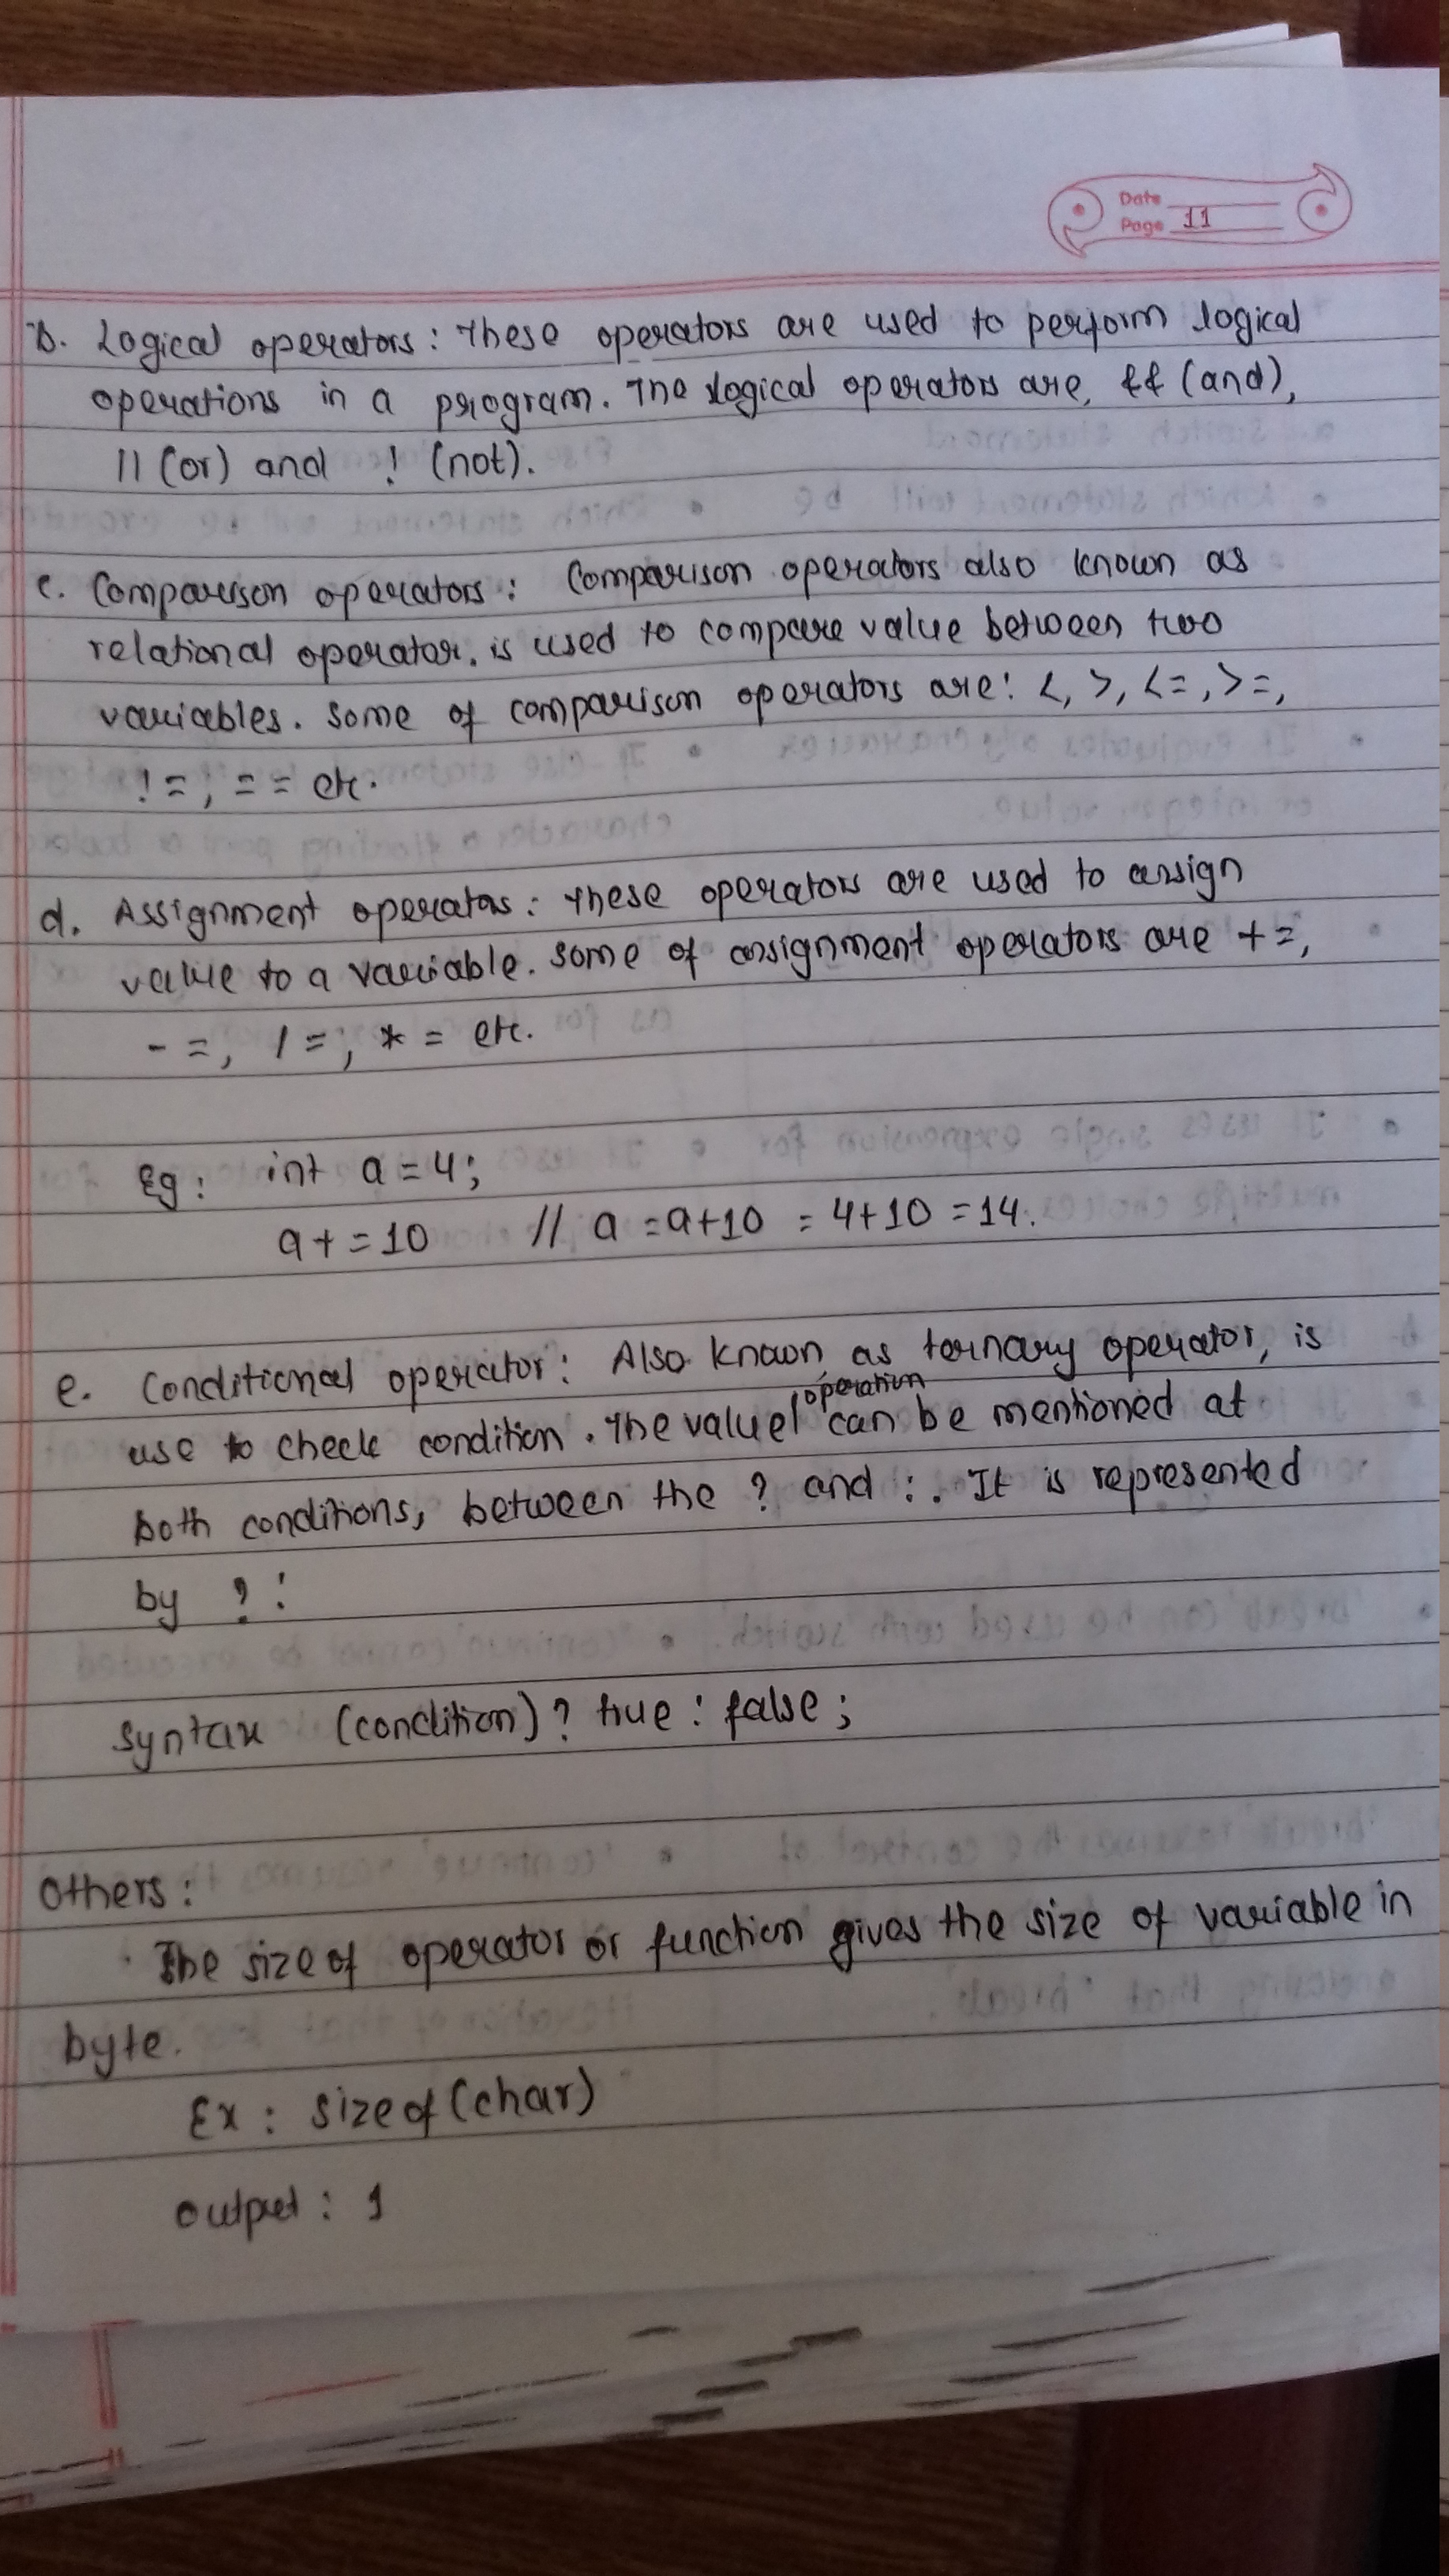 Date
Page 11
b. Logical operators: These operators are used to perform logical
operations in a program. The logical operators are, && (and),
|| (or) and ! (not).
c. Comparison operators: Comparison operators also known as
relational operator. is used to compare value between two
variables. Some of comparison operators are: <, >, <=, >=,
!=, == etc.
d. Assignment operators: These operators are used to assign
value to a variable. Some of assignment operators are +=,
-=, /=, *= etc.
Eg: int a = 4;
a+=10 // a = a+10 = 4+10 = 14.
e. Conditional operator: Also known as ternary operator, is
use to check condition. The value/operation can be mentioned at
both conditions, between the ? and :. It is represented
by ? :
Syntax (condition)? true : false;
Others:
The size of operator or function gives the size of variable in
byte.
Ex: size of (char)
output: 1